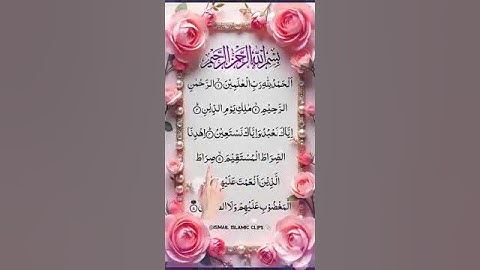 بِسْمِ اللهِ الرَّحْمٰنِ الرَّحِيْمِ
اَلْحَمْدُ لِلّٰهِ رَبِّ الْعٰلَمِيْنَ ۝١ الرَّحْمٰنِ
الرَّحِيْمِ ۝٢ مٰلِكِ يَوْمِ الدِّيْنِ ۝٣
اِيَّاكَ نَعْبُدُ وَاِيَّاكَ نَسْتَعِيْنُ ۝٤ اِهْدِنَا
الصِّرَاطَ الْمُسْتَقِيْمَ ۝٥ صِرَاطَ
الَّذِيْنَ اَنْعَمْتَ عَلَيْهِمْ
الْمَغْضُوْبِ عَلَيْهِمْ وَلَا
@ISMAIL ISLAMIC CLIPS